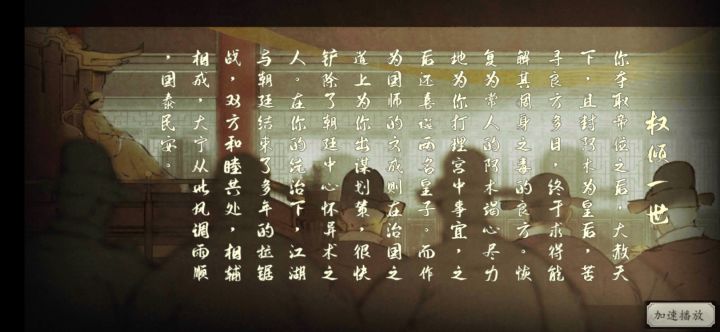 权倾一世
你夺取帝位之后，大赦天
下，且封阿木为皇后，苦
寻良方多日，终于求得能
解其周身之毒的良方。恢
复为常人的阿木竭心尽力
地为你打理宫中事宜，之
后还喜诞两名皇子。而作
为国师的方成则在治国之
道上为你出谋划策，很快
铲除了朝廷中心怀异术之
人。在你的统治下，江湖
与朝廷结束了多年的拉锯
战，双方和睦共处，相辅
相成，大宁从此风调雨顺
，国泰民安。
加速播放